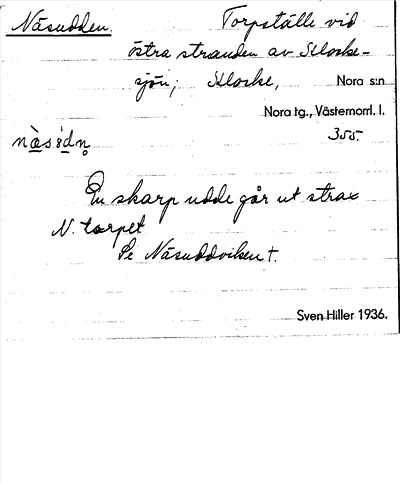 Näsudden. Torpställe vid
östra stranden av Klocke-
sjön; Klocke, Nora s:n
Nora tg., Västernorrl. l.
355.
En skarp udde går ut strax
N. torpet
Se Näsuddviken t.
Sven Hiller 1936.